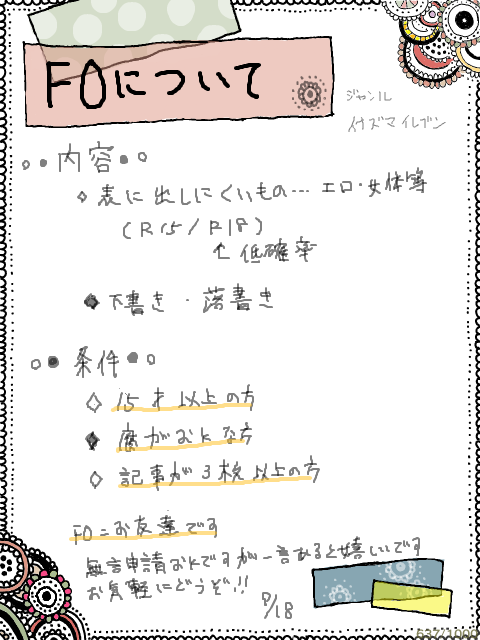 FOについて
ジャンル
イナズマイレブン
○●内容●○
◇表に出しにくいもの… エロ・女体等
(R15/R18)
↑低確率
◆下書き・落書き
○●条件●○
◇15才以上の方
◆腐がおkな方
◇記事が3枚以上の方
FO=お友達です
無言申請おkですが一言あると嬉しいです
お気軽にどうぞ!!
8/18
637/1000